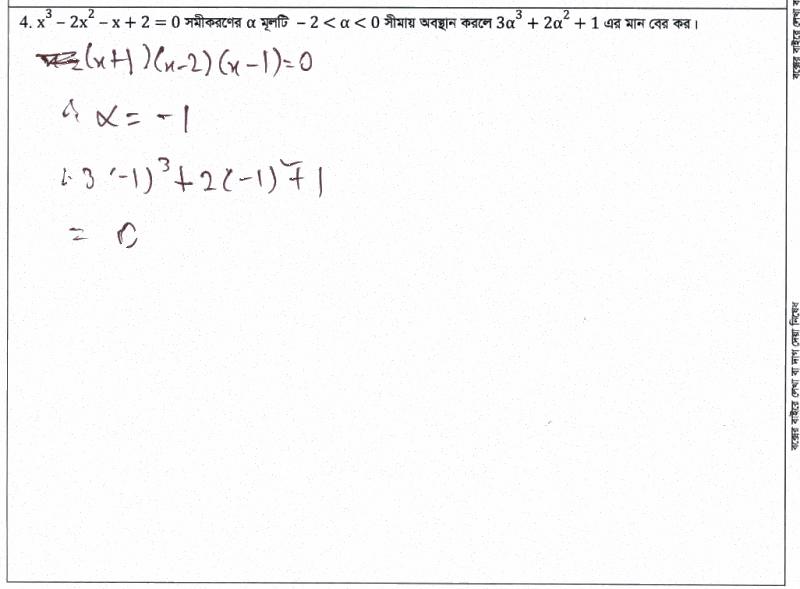 4. x³ − 2x² − x + 2 = 0 সমীকরণের α মূলটি − 2 < α < 0 সীমায় অবস্থান করলে 3α³ + 2α² + 1 এর মান বের কর।
(x+1)(x-2)(x-1)=0
∴ α = -1
∴ 3(-1)³ + 2(-1)² + 1
= 0
বক্সের বাইরে লেখা ব
বক্সের বাইরে লেখা বা দাগ দেয়া নিষেধ